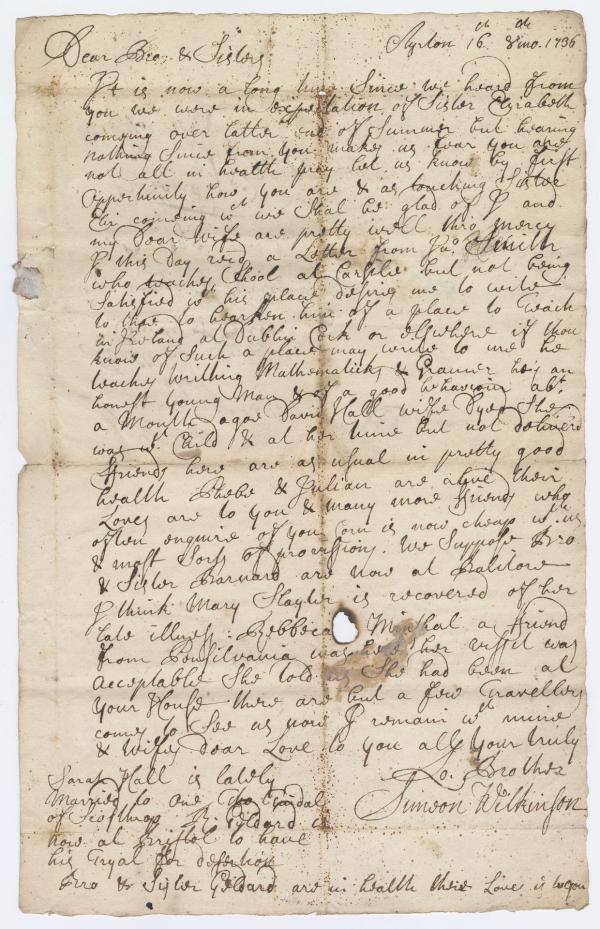 Dear Bro: & Sisters
Ayrton 16th 8mo. 1736
It is now a long time Since we heard from
you we were in expectation of Sister Elizabeth
comeing over latter end of Summer but hearing
nothing Since from you makes us fear you are
not all in health pray let us know by first
opportunity how you are & as touching Sister
Eliz comeing wch we Shal be glad of I and
my Dear wife are pretty well thro mercy
I this Day recd a Letter from Jno. Smith
who teaches Chool at Carlile but not being
Satisfied wth his place desires me to write
to thee to hearken him of a place to Teach
in Ireland at Dublin Cork or elsewhere if thou
know of Such a place may write to me he
teaches writting Mathematicks & Gramer he's an
honest young Man & of a good behaviour abt.
a Month agoe David Hall wiffe Dyed She
was wt. Child & at her time but not deliver'd
Friends here are as usual in pretty good
health Phebe & Julian are alive their
Loves are to you & many more friends who
often enquire of you Corn is now cheap wth us
& most Sorts of provissions. We Suppose Bro
& Sister Barnard are now at Balitore
I think Mary Slayter is recovered of her
late illness: Rebbeca Minshal a friend
from Pensilvania was here her vissit was
acceptable She told us She had been at
your House there are but a few Travellers
comes to See us now I remain wth mine
& Wifes Dear Love to you all Your truly
Lo. Brother
Simeon Wilkinson
Sarah Hall is lately
Married to one Tho
of Scothrop B: Geldard is
now at Bristol to have
his Tryal for desertion
Bro & Sister Geldard are in health their Love is to you